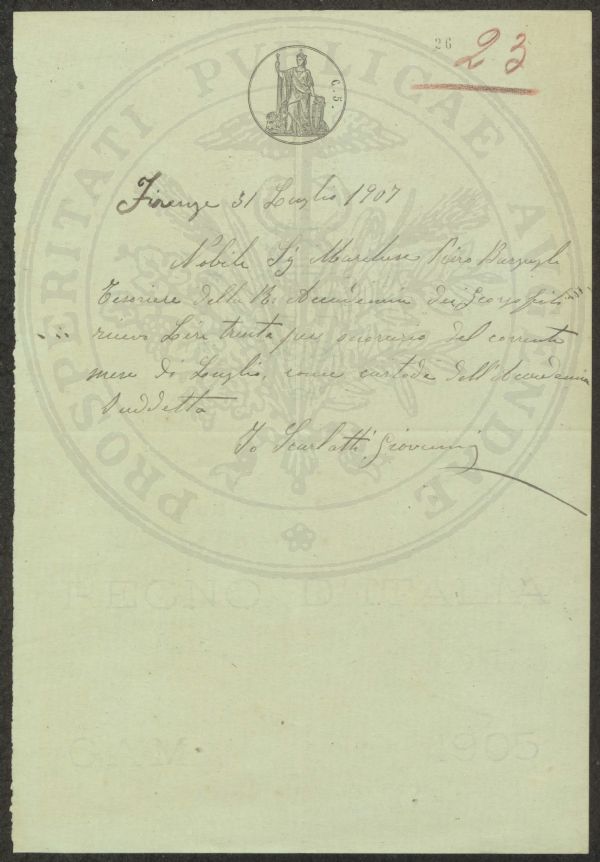 26 23
C. 5.
PROSPERITATI PUBLICAE AUGENDAE
Firenze 31 Luglio 1907
Nobile Sig Marchese Piero Bargagli
Tesoriere della R. Accademia dei Georgofili
ricevo Lire trenta per onorario del corrente
mese di Luglio, come custode dell'Accademia
Suddetta
Io Scarlatti Giovanni
REGNO D'ITALIA
1905